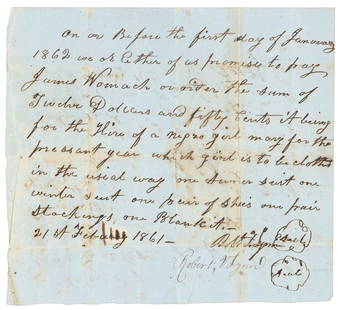 On or Before the first day of Januawy
1862 we or Either of us promise to pay
James Womach or order the sum of
Twelve Dollars and fifty Cents it being
for the Hire of a Negro girl mary for the
preasant year which girl is to be clothed
in the usual way one sumer suit one
winter suit one pair of shoes one pair
Stockings, one Blankit. —
21st Febuay 1861 —
Seal
Seal
Robert